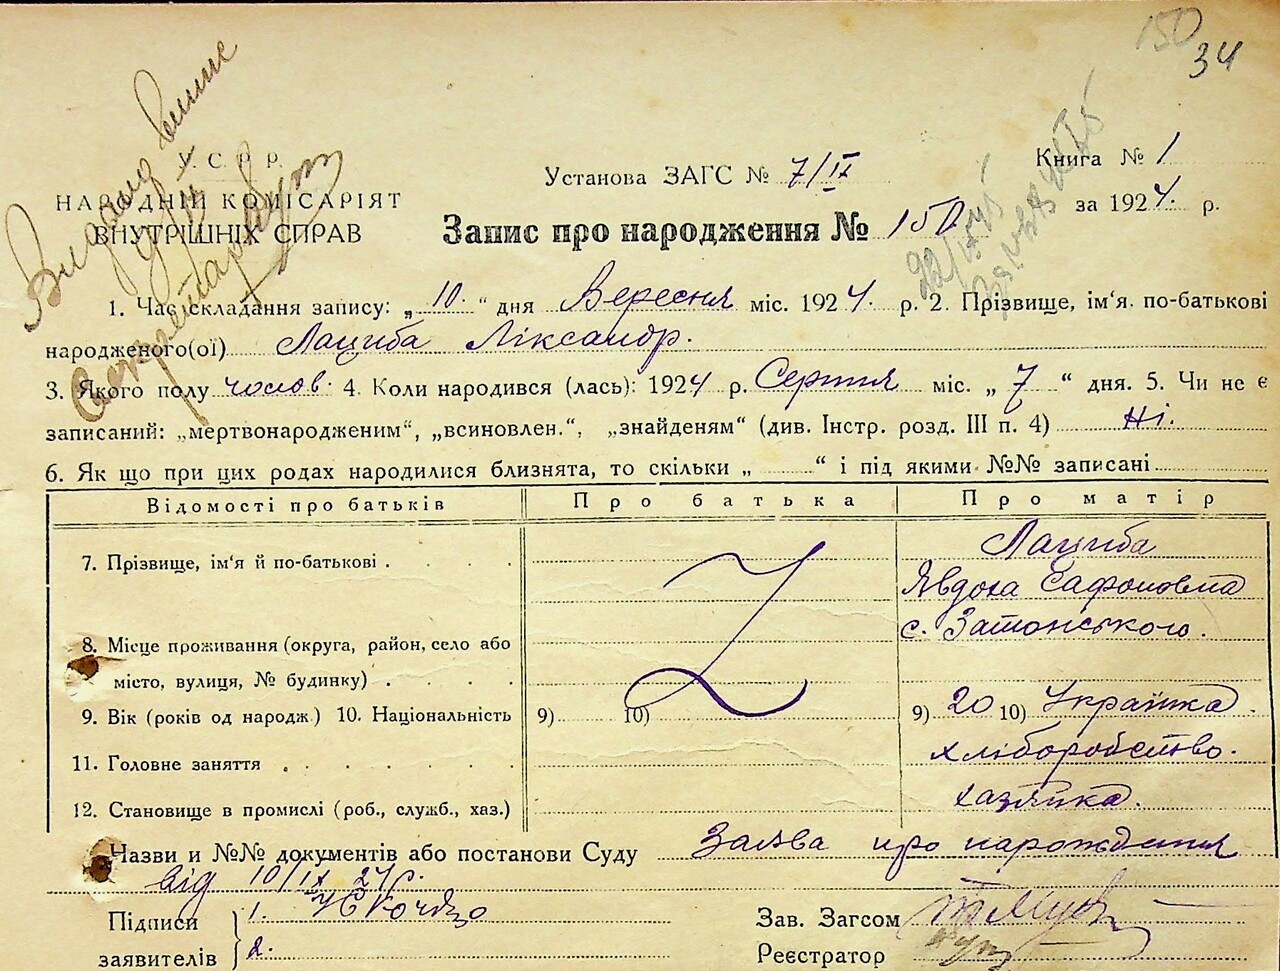 150
34
Видано випис
У. С. Р. Р.
НАРОДНІЙ КОМІСАРІЯТ
ВНУТРІШНІХ СПРАВ
Установа ЗАГС № 7/IX
Книга № 1
за 1924. р.
Запис про народження № 150
1. Час складання запису: „ 10. “ дня Вересня міс. 1924. р. 2. Прізвище, ім'я. по-батькові
народженого(ої) Лациба Ліксандр.
3. Якого полу чолов. 4. Коли народився (лась): 1924 р. Серпня міс. „ 7 “ дня. 5. Чи не є
записаний: „мертвонародженим“, „всиновлен.“, „знайденям“ (див. Інстр. розд. III п. 4) Ні.
6. Як що при цих родах народилися близнята, то скільки „ “ і під якими №№ записані
Відомості про батьків Про батька Про матір
7. Прізвище, ім'я й по-батькові Лациба
Явдоха Сафоновна
с. Затонського.
8. Місце проживання (округа, район, село або
місто, вулиця, № будинку)
9. Вік (років од народж.) 10. Національність 9) 10) 9) 20 10) Українка.
11. Головне заняття хліборобство.
12. Становище в промислі (роб., служб., хаз.) хазяйка.
Назви и №№ документів або постанови Суду Заява про народження
від 10/IX 24 р.
Підписи
заявителів
1.
2.
Зав. Загсом
Реєстратор